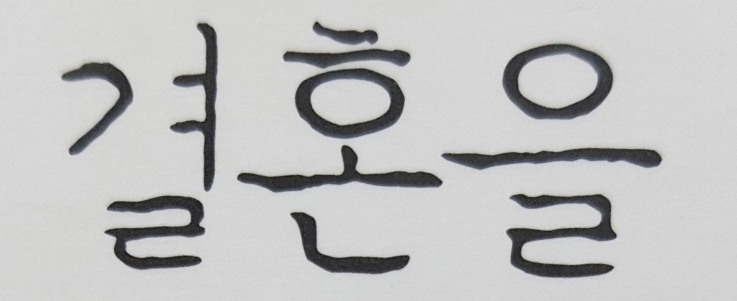 결혼을